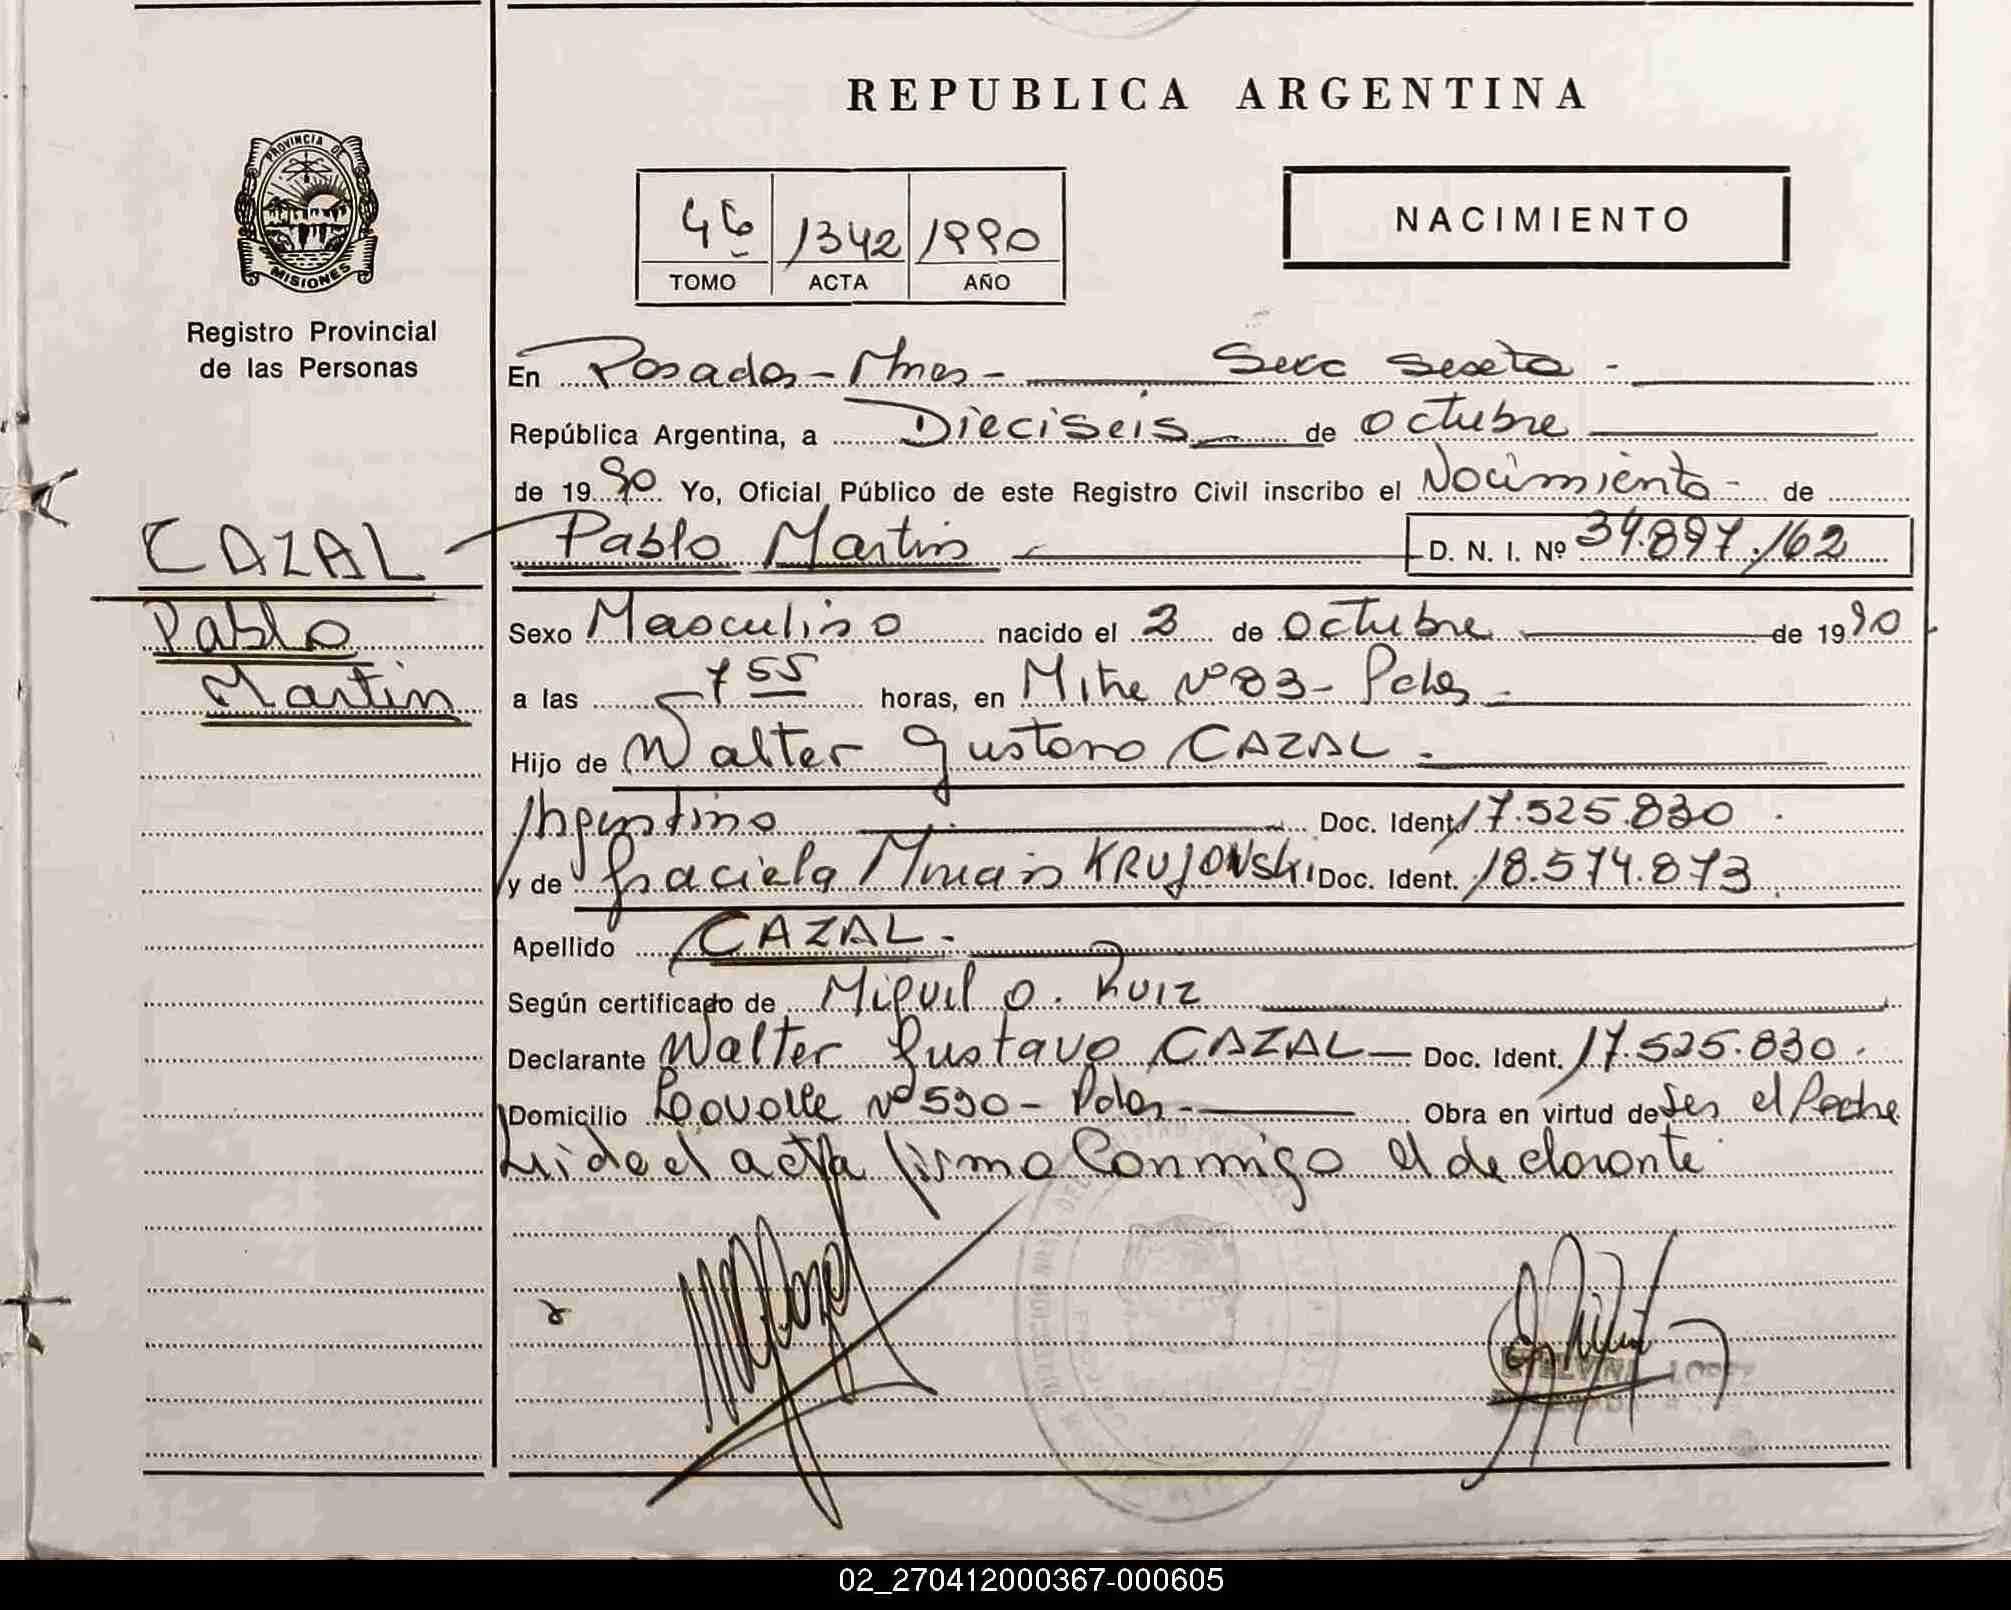 REPUBLICA ARGENTINA
PROVINCIA DE
MISIONES
Registro Provincial
de las Personas
46 1342 1990
TOMO ACTA AÑO
NACIMIENTO
En Posadas - Mnes - Secc Sexta -
República Argentina, a Dieciseis de octubre
de 1990 Yo, Oficial Público de este Registro Civil inscribo el Nacimiento - de
CAZAL Pablo Martin D. N. I. Nº 34.897.162
Pablo
Martin
Sexo Masculino nacido el 3 de octubre de 1990
a las 7 55 horas, en Mitre Nº 83 - Pdas -
Hijo de Walter Gustavo CAZAL -
Argentino Doc. Ident. 17.525.830
y de Graciela Miriam KRUJOWSKI Doc. Ident. 18.574.873
Apellido CAZAL -
Según certificado de Miguel O. Ruiz
Declarante Walter Gustavo CAZAL - Doc. Ident. 17.525.830.
Domicilio Lavalle Nº 590 - Pdas - Obra en virtud de Ser el Padre
Leida el acta firma Conmigo el declarante
LOPEZ
02_270412000367-000605